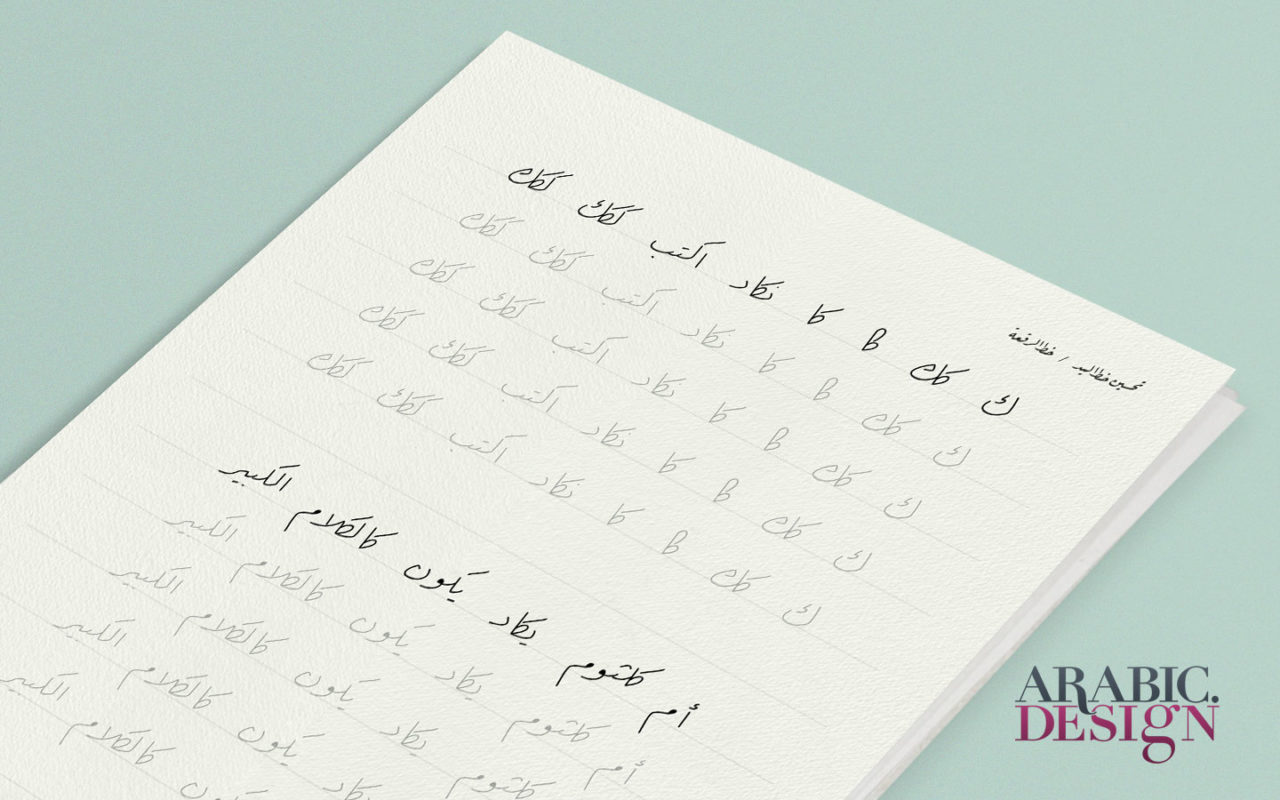 تحسين خط اليد / خط الرقعة
ك كك كا نكاد اكتب ككك ككك
ك كك كا نكاد اكتب ككك ككك
ك كك كا نكاد اكتب ككك ككك
ك كك كا نكاد اكتب ككك ككك
ك كك كا نكاد اكتب ككك ككك
أم كلثوم يكاد يكون كالكلام الكبير
أم كلثوم يكاد يكون كالكلام الكبير
أم كلثوم يكاد يكون كالكلام الكبير
يكاد يكون كالكلام الكبير
كالكلام
ARABIC.
DESIGN